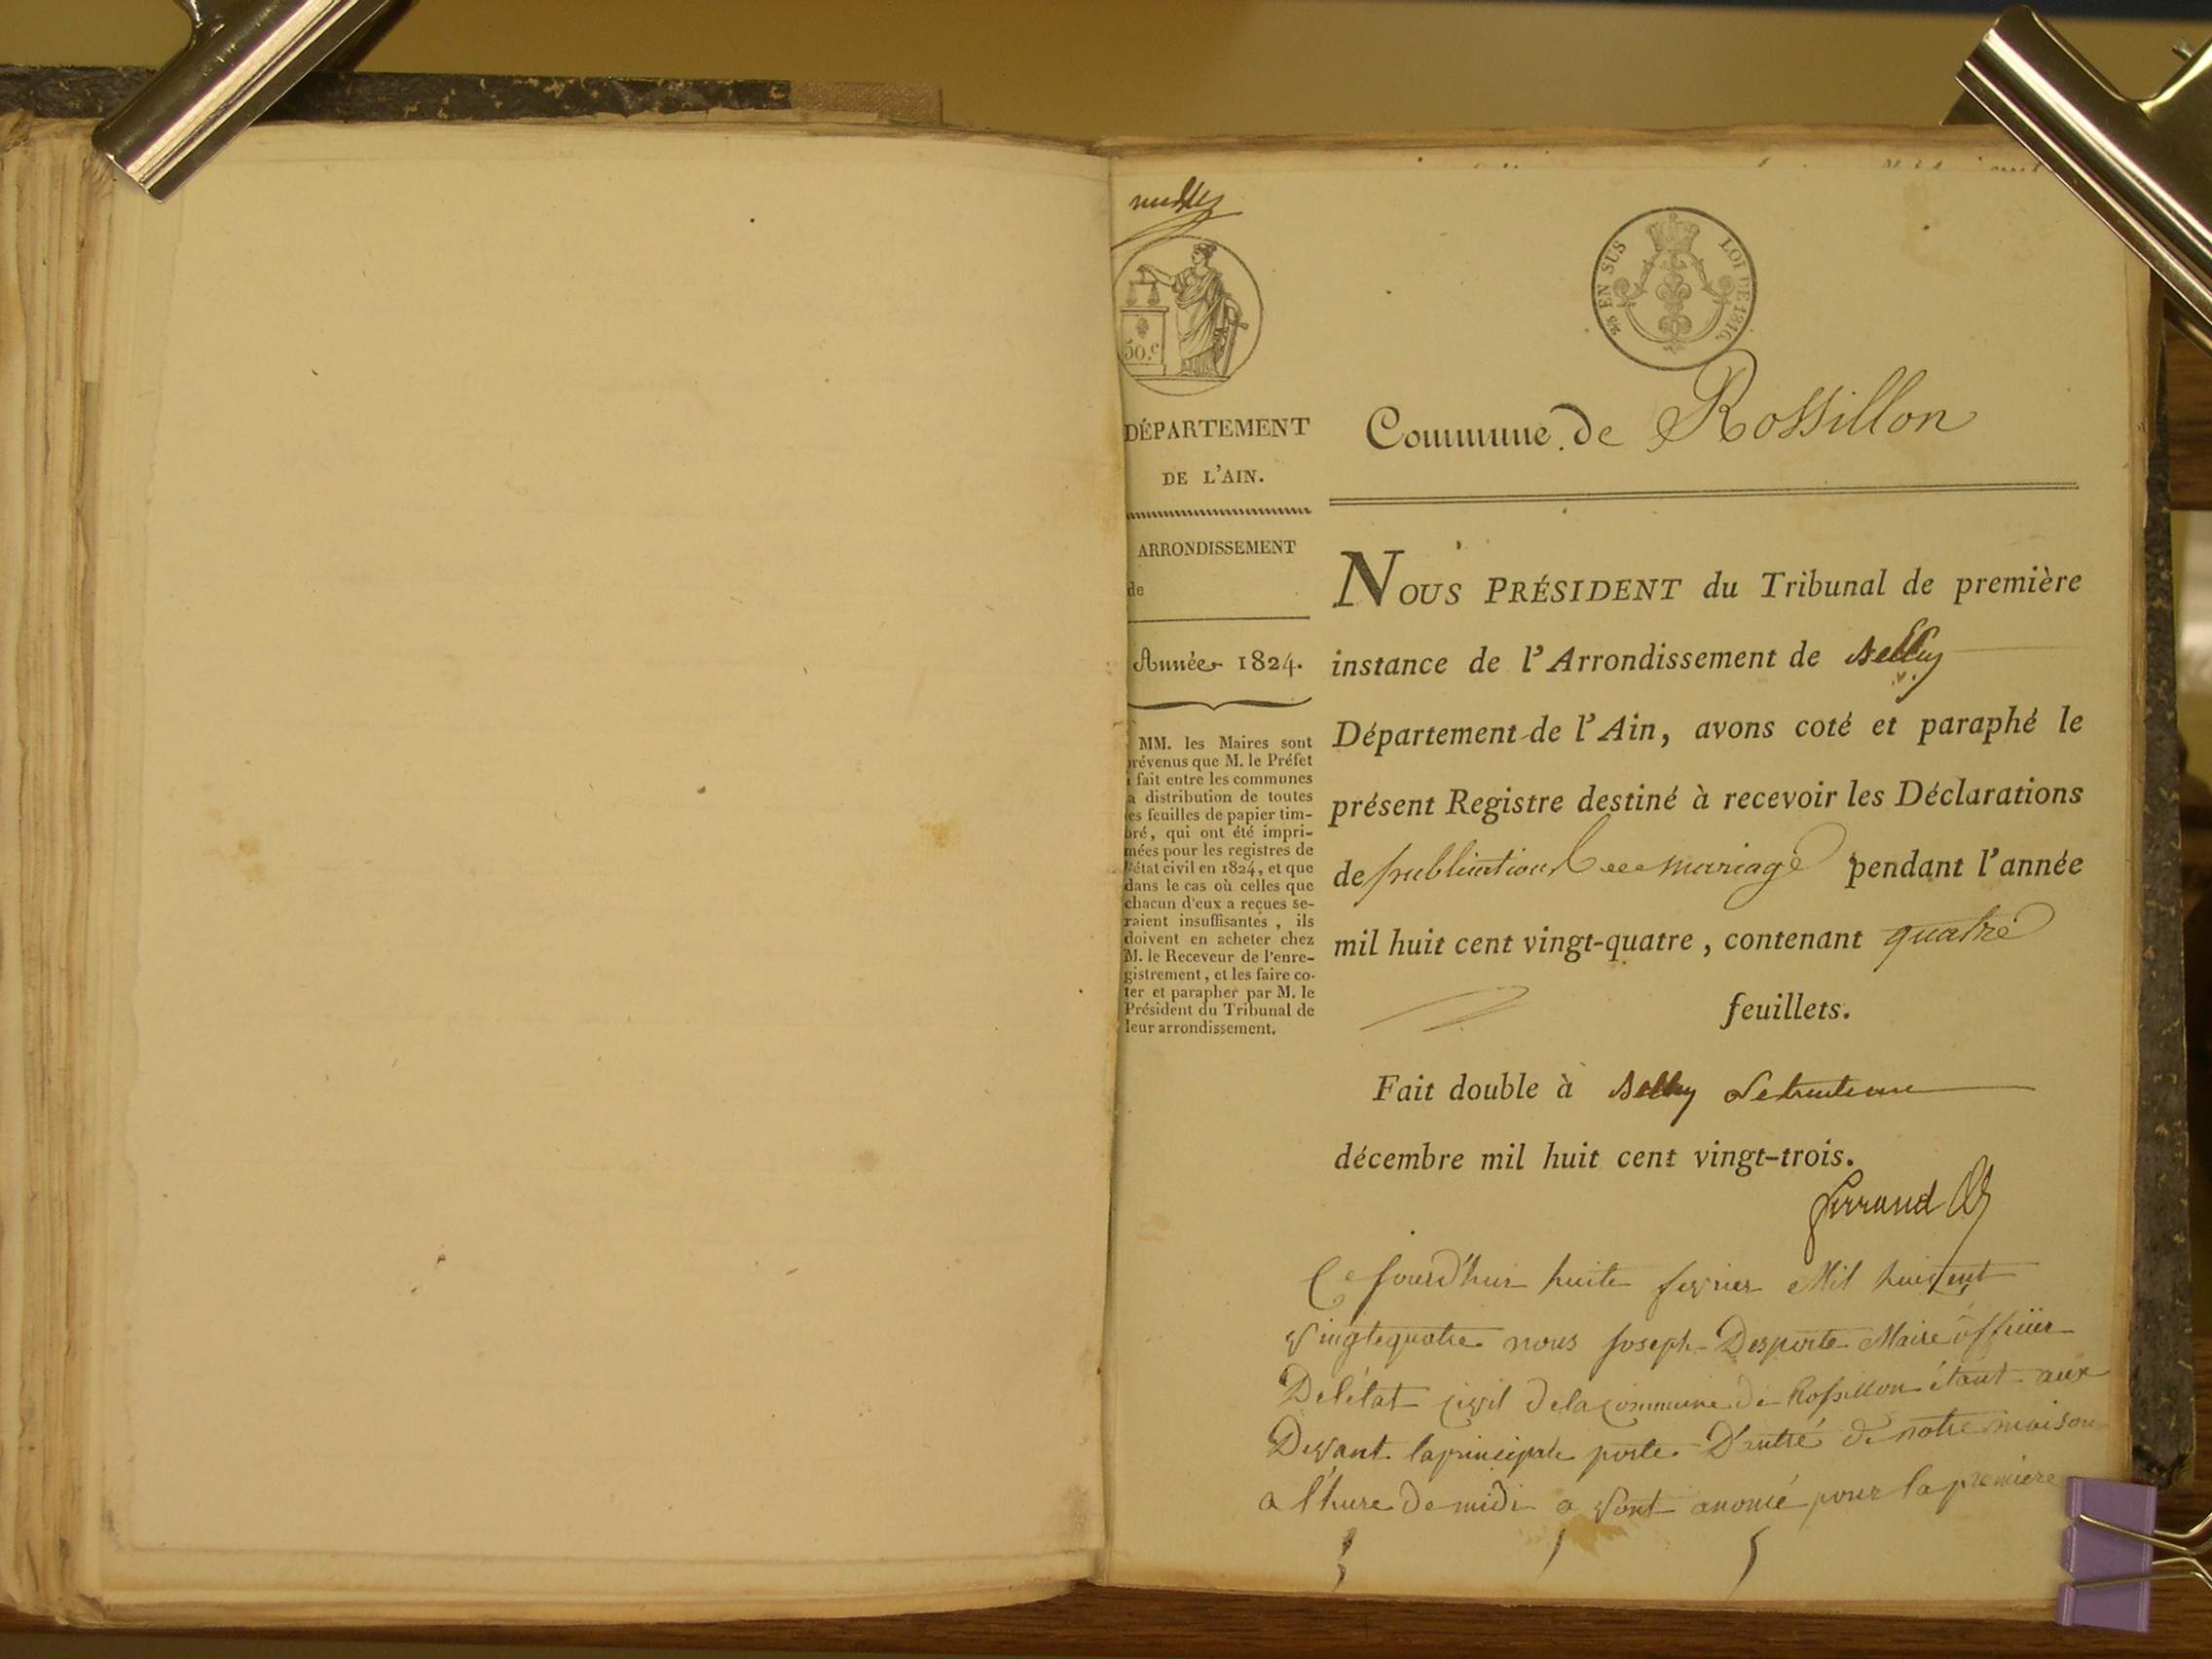 50.c
2/5 EN SUS LOI DE 1816.
DÉPARTEMENT
DE L'AIN.
ARRONDISSEMENT
de
Année 1824.
MM. les Maires sont
prévenus que M. le Préfet
a fait entre les communes
la distribution de toutes
les feuilles de papier tim-
bré, qui ont été impri-
mées pour les registres de
l'état civil en 1824, et que
dans le cas où celles que
chacun d'eux a reçues se-
raient insuffisantes, ils
doivent en acheter chez
M. le Receveur de l'enre-
gistrement, et les faire co-
ter et parapher par M. le
Président du Tribunal de
leur arrondissement.
Commune de Rossillon
NOUS PRÉSIDENT du Tribunal de première
instance de l'Arrondissement de Belley
Département de l'Ain, avons coté et paraphé le
présent Registre destiné à recevoir les Déclarations
de publication de mariage pendant l'année
mil huit cent vingt-quatre, contenant quatre
feuillets.
Fait double à Belley Le trente un
décembre mil huit cent vingt-trois.
Ferrand
Ce jourd'hui huite fevrier Mil huit cent
vingtequatre nous joseph Desporte Maire officier
De létat civil De la commune De Rossillon étant aux
Devant la principale porte D'antré de notre maison
a l'hure De midi a vont anoncé pour la premiere